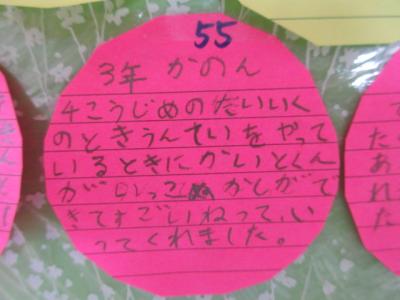 55
3年 かのん
4こうじめのたいいく
のときうんていをやって
いるときにかいとくん
がいっこぬかしがで
きてすごいねって、い
ってくれました。